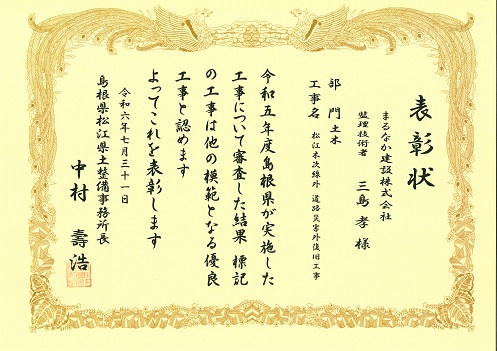 表彰状
まるなか建設株式会社
監理技術者
三島 孝 様
部 門 土木
工事名 松江木次線外 道路災害外復旧工事
令和五年度島根県が実施した
工事について審査した結果 標記
の工事は他の模範となる優良
工事と認めます
よってこれを表彰します
令和六年七月三十一日
島根県松江県土整備事務所長
中村 壽浩